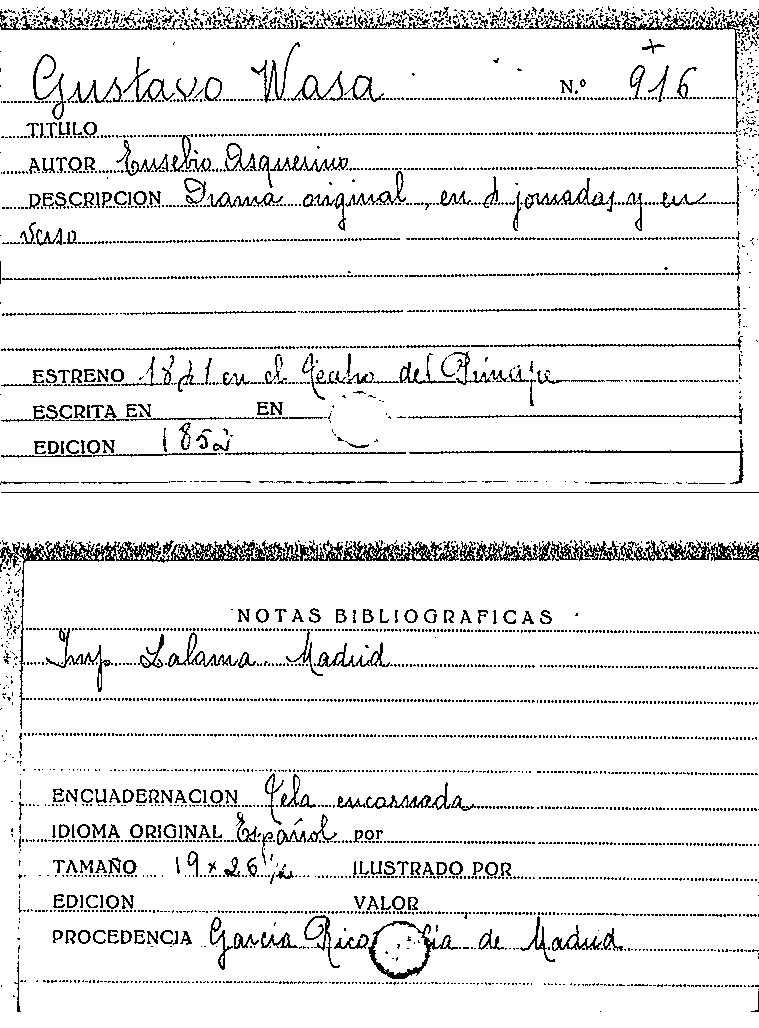 Gustavo Wasa N.º 916
TITULO
AUTOR Eusebio Asquerino
DESCRIPCION Drama original, en jornadas y en
verso
ESTRENO en el Teatro del Principe
ESCRITA EN EN
EDICION 1852
NOTAS BIBLIOGRAFICAS
Imp. Lalama. Madrid
ENCUADERNACION Tela encarnada
IDIOMA ORIGINAL Español por
TAMAÑO 19 x 26 1/2 ILUSTRADO POR
EDICION VALOR
PROCEDENCIA Garcia Rico de Madrid